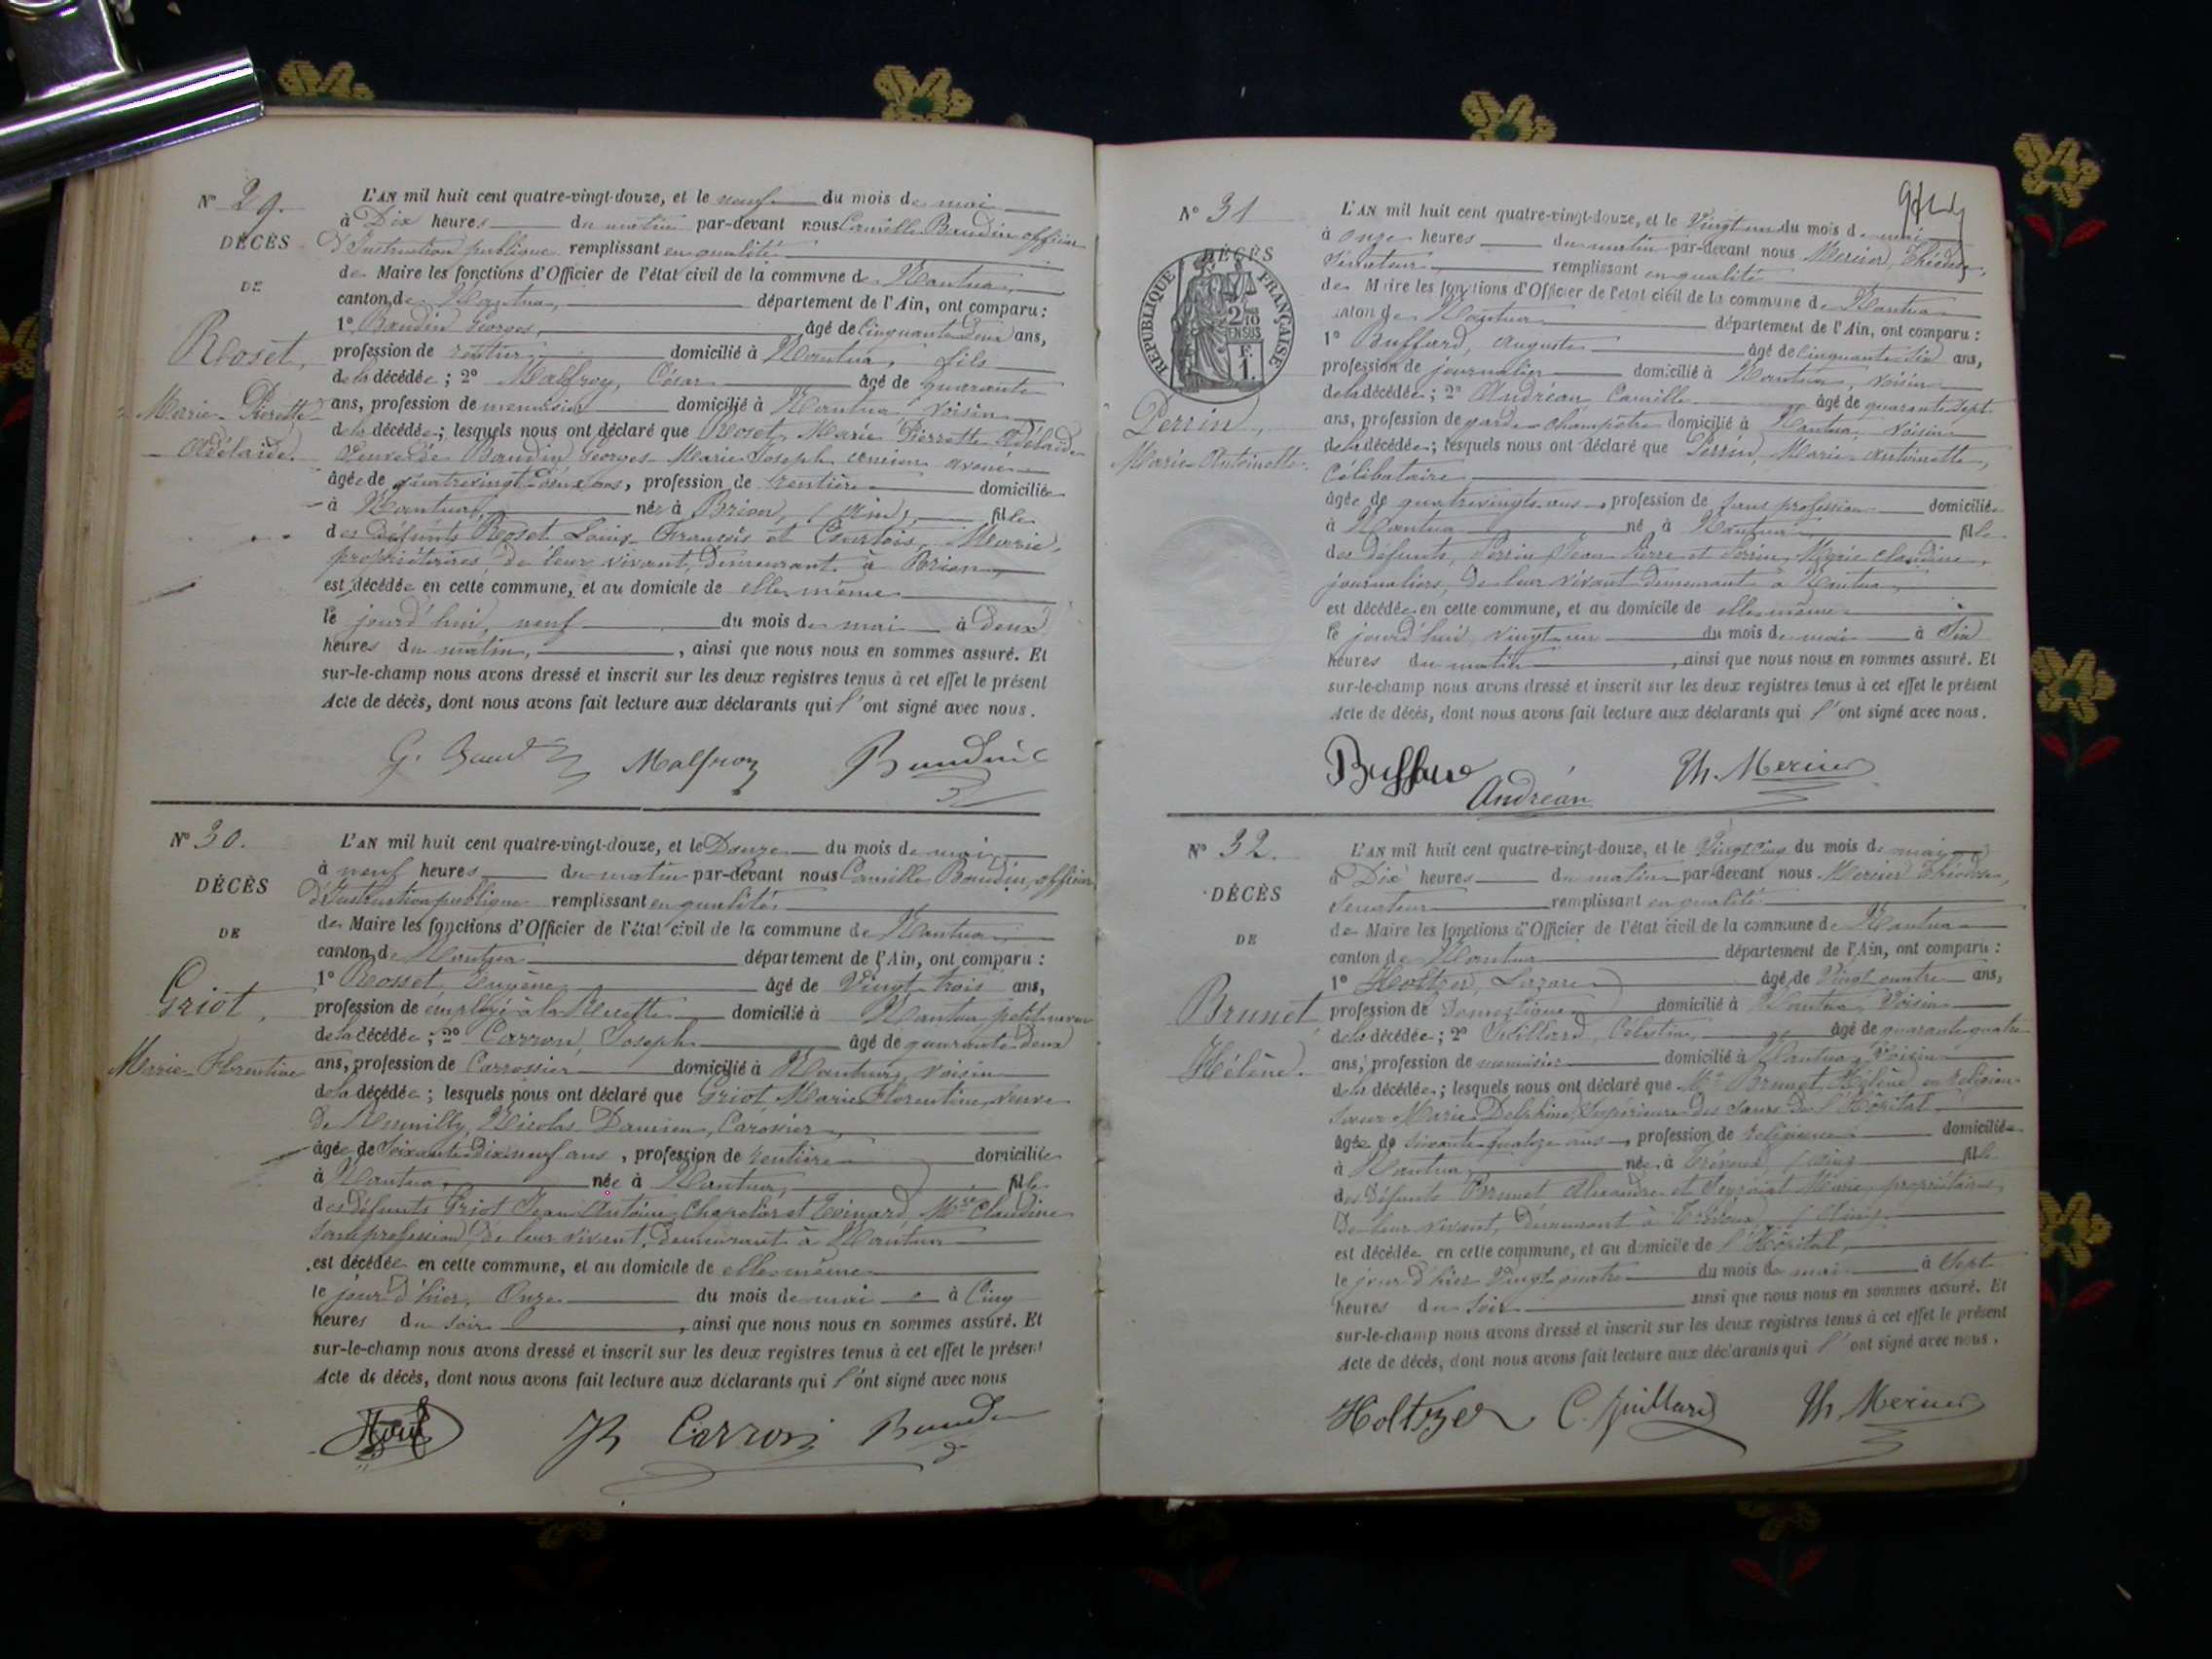 N° 29.
DÉCÈS
DE
Roset,
Marie-Pierette
Adélaïde.
L'AN mil huit cent quatre-vingt-douze, et le neuf du mois de mai
à Dix heures du matin par-devant nous Camille Baudin officier
d'Instruction publique remplissant en qualité
de Maire les fonctions d'Officier de l'état civil de la commvne de Nantua
canton de Nantua, département de l'Ain, ont comparu :
1° Baudin Georges, âgé de Cinquante Deux ans,
profession de rentier domicilié à Nantua, fils
de la décédée ; 2° Malfroy, César âgé de quarante
ans, profession de menuisier domicilié à Nantua voisin
de la décédée ; lesquels nous ont déclaré que Roset, Marie Pierrette Adélaïde
Veuve de Baudin Georges Marie Joseph ancien avoué
âgée de quatrevingt deux ans, profession de rentière domiciliée
à Nantua, née à Brion, (Ain), fille
des défunts Roset Louis François et Courtois, Marie,
propriétaires, de leur vivant, demeurant à Brion,
est décédée en cette commune, et au domicile de elle même
le jourd'hui, neuf du mois de mai à deux
heures du matin, , ainsi que nous nous en sommes assuré. Et
sur-le-champ nous avons dressé et inscrit sur les deux registres tenus à cet effet le présent
Acte de décès, dont nous avons fait lecture aux déclarants qui l'ont signé avec nous.
Malfroy Baudin
N° 30.
DÉCÈS
DE
Griot,
Marie-Florentine
L'AN mil huit cent quatre-vingt-douze, et le Douze du mois de mai
à neuf heures du matin par-devant nous Camille Baudin, officier
d'Instruction publique remplissant en qualité
de Maire les fonctions d'Officier de l'état civil de la commune de Nantua
canton de Nantua département de l'Ain, ont comparu :
1° Rosset Eugène âgé de Vingt trois ans,
profession de employé à la Recette domicilié à Nantua petit neveu
de la décédée ; 2° Carron, Joseph âgé de quarante deux
ans, profession de Carrossier domicilié à Nantua, voisin
de la décédée ; lesquels nous ont déclaré que Griot, Marie Florentine, veuve
de Nicolas Damien, Carossier,
âgée de Soixante Dix neuf ans, profession de rentière domiciliée
à Nantua, née à Nantua, fille
des défunts Griot Jean Antoine, Chapelier et Mie Claudine
sans profession, de leur vivant, demeurant à Nantua
est décédée en cette commune, et au domicile de elle même
le jour d'hier, Onze du mois de mai à Cinq
heures du soir , ainsi que nous nous en sommes assuré. Et
sur-le-champ nous avons dressé et inscrit sur les deux registres tenus à cet effet le présent
Acte de décès, dont nous avons fait lecture aux déclarants qui l'ont signé avec nous
Carron Baudin
N° 31
DÉCÈS
RÉPUBLIQUE FRANÇAISE
2/10 EN SUS
F. 1.
Perrin,
Marie Antoinette.
L'AN mil huit cent quatre-vingt-douze, et le Vingt un du mois de mai
à onze heures du matin par-devant nous Mercier, Théodore,
Sénateur remplissant en qualité
de Maire les fonctions d'Officier de l'état civil de la commune de Nantua
canton de Nantua département de l'Ain, ont comparu :
1° Buffard, Auguste âgé de Cinquante Six ans,
profession de journalier domicilié à Nantua, voisin
de la décédée ; 2° Andréan Camille âgé de quarante sept
ans, profession de garde-champêtre domicilié à Nantua, voisin
de la décédée ; lesquels nous ont déclaré que Perrin, Marie Antoinette,
Célibataire
âgée de quatrevingts ans, profession de sans profession domiciliée
à Nantua né à Nantua fille
des défunts, Perrin Jean Pierre et Perrin, Marie Claudine,
journaliers, de leur vivant demeurant à Nantua,
est décédée en cette commune, et au domicile de elle même
le jourd'hui vingt un du mois de mai à Six
heures du matin , ainsi que nous nous en sommes assuré. Et
sur-le-champ nous avons dressé et inscrit sur les deux registres tenus à cet effet le présent
Acte de décès, dont nous avons fait lecture aux déclarants qui l'ont signé avec nous.
Buffard Andréan Th. Mercier
N° 32.
DÉCÈS
DE
Brunet,
Hélène.
L'AN mil huit cent quatre-vingt-douze, et le Vingt cinq du mois de mai
à Dix heures du matin par-devant nous Mercier Théodore,
Senateur remplissant en qualité
de Maire les fonctions d'Officier de l'état civil de la commune de Nantua
canton de Nantua département de l'Ain, ont comparu :
1° Holtzer, Lazare âgé de Vingt quatre ans,
profession de Domestique domicilié à Nantua, Voisin
de la décédée ; 2° Juillard, Célestin, âgé de quarante quatre
ans, profession de menuisier domicilié à Nantua, Voisin
de la décédée ; lesquels nous ont déclaré que Brunet, Hélène en religion
Sœur Marie Delphine, Supérieure des Sœurs de l'Hôpital
âgée de soixante quatorze ans, profession de religieuse domiciliée
à Nantua, née à Trévoux, (Ain) fille
des défunts Brunet Alexandre et Marie, propriétaires,
de leur vivant, demeurant à Trévoux, (Ain)
est décédée en cette commune, et au domicile de l'Hôpital,
le jour d'hier Vingt quatre du mois de mai à Sept
heures du soir ainsi que nous nous en sommes assuré. Et
sur-le-champ nous avons dressé et inscrit sur les deux registres tenus à cet effet le présent
Acte de décès, dont nous avons fait lecture aux déclarants qui l'ont signé avec nous.
Holtzer C. Juillard Th. Mercier